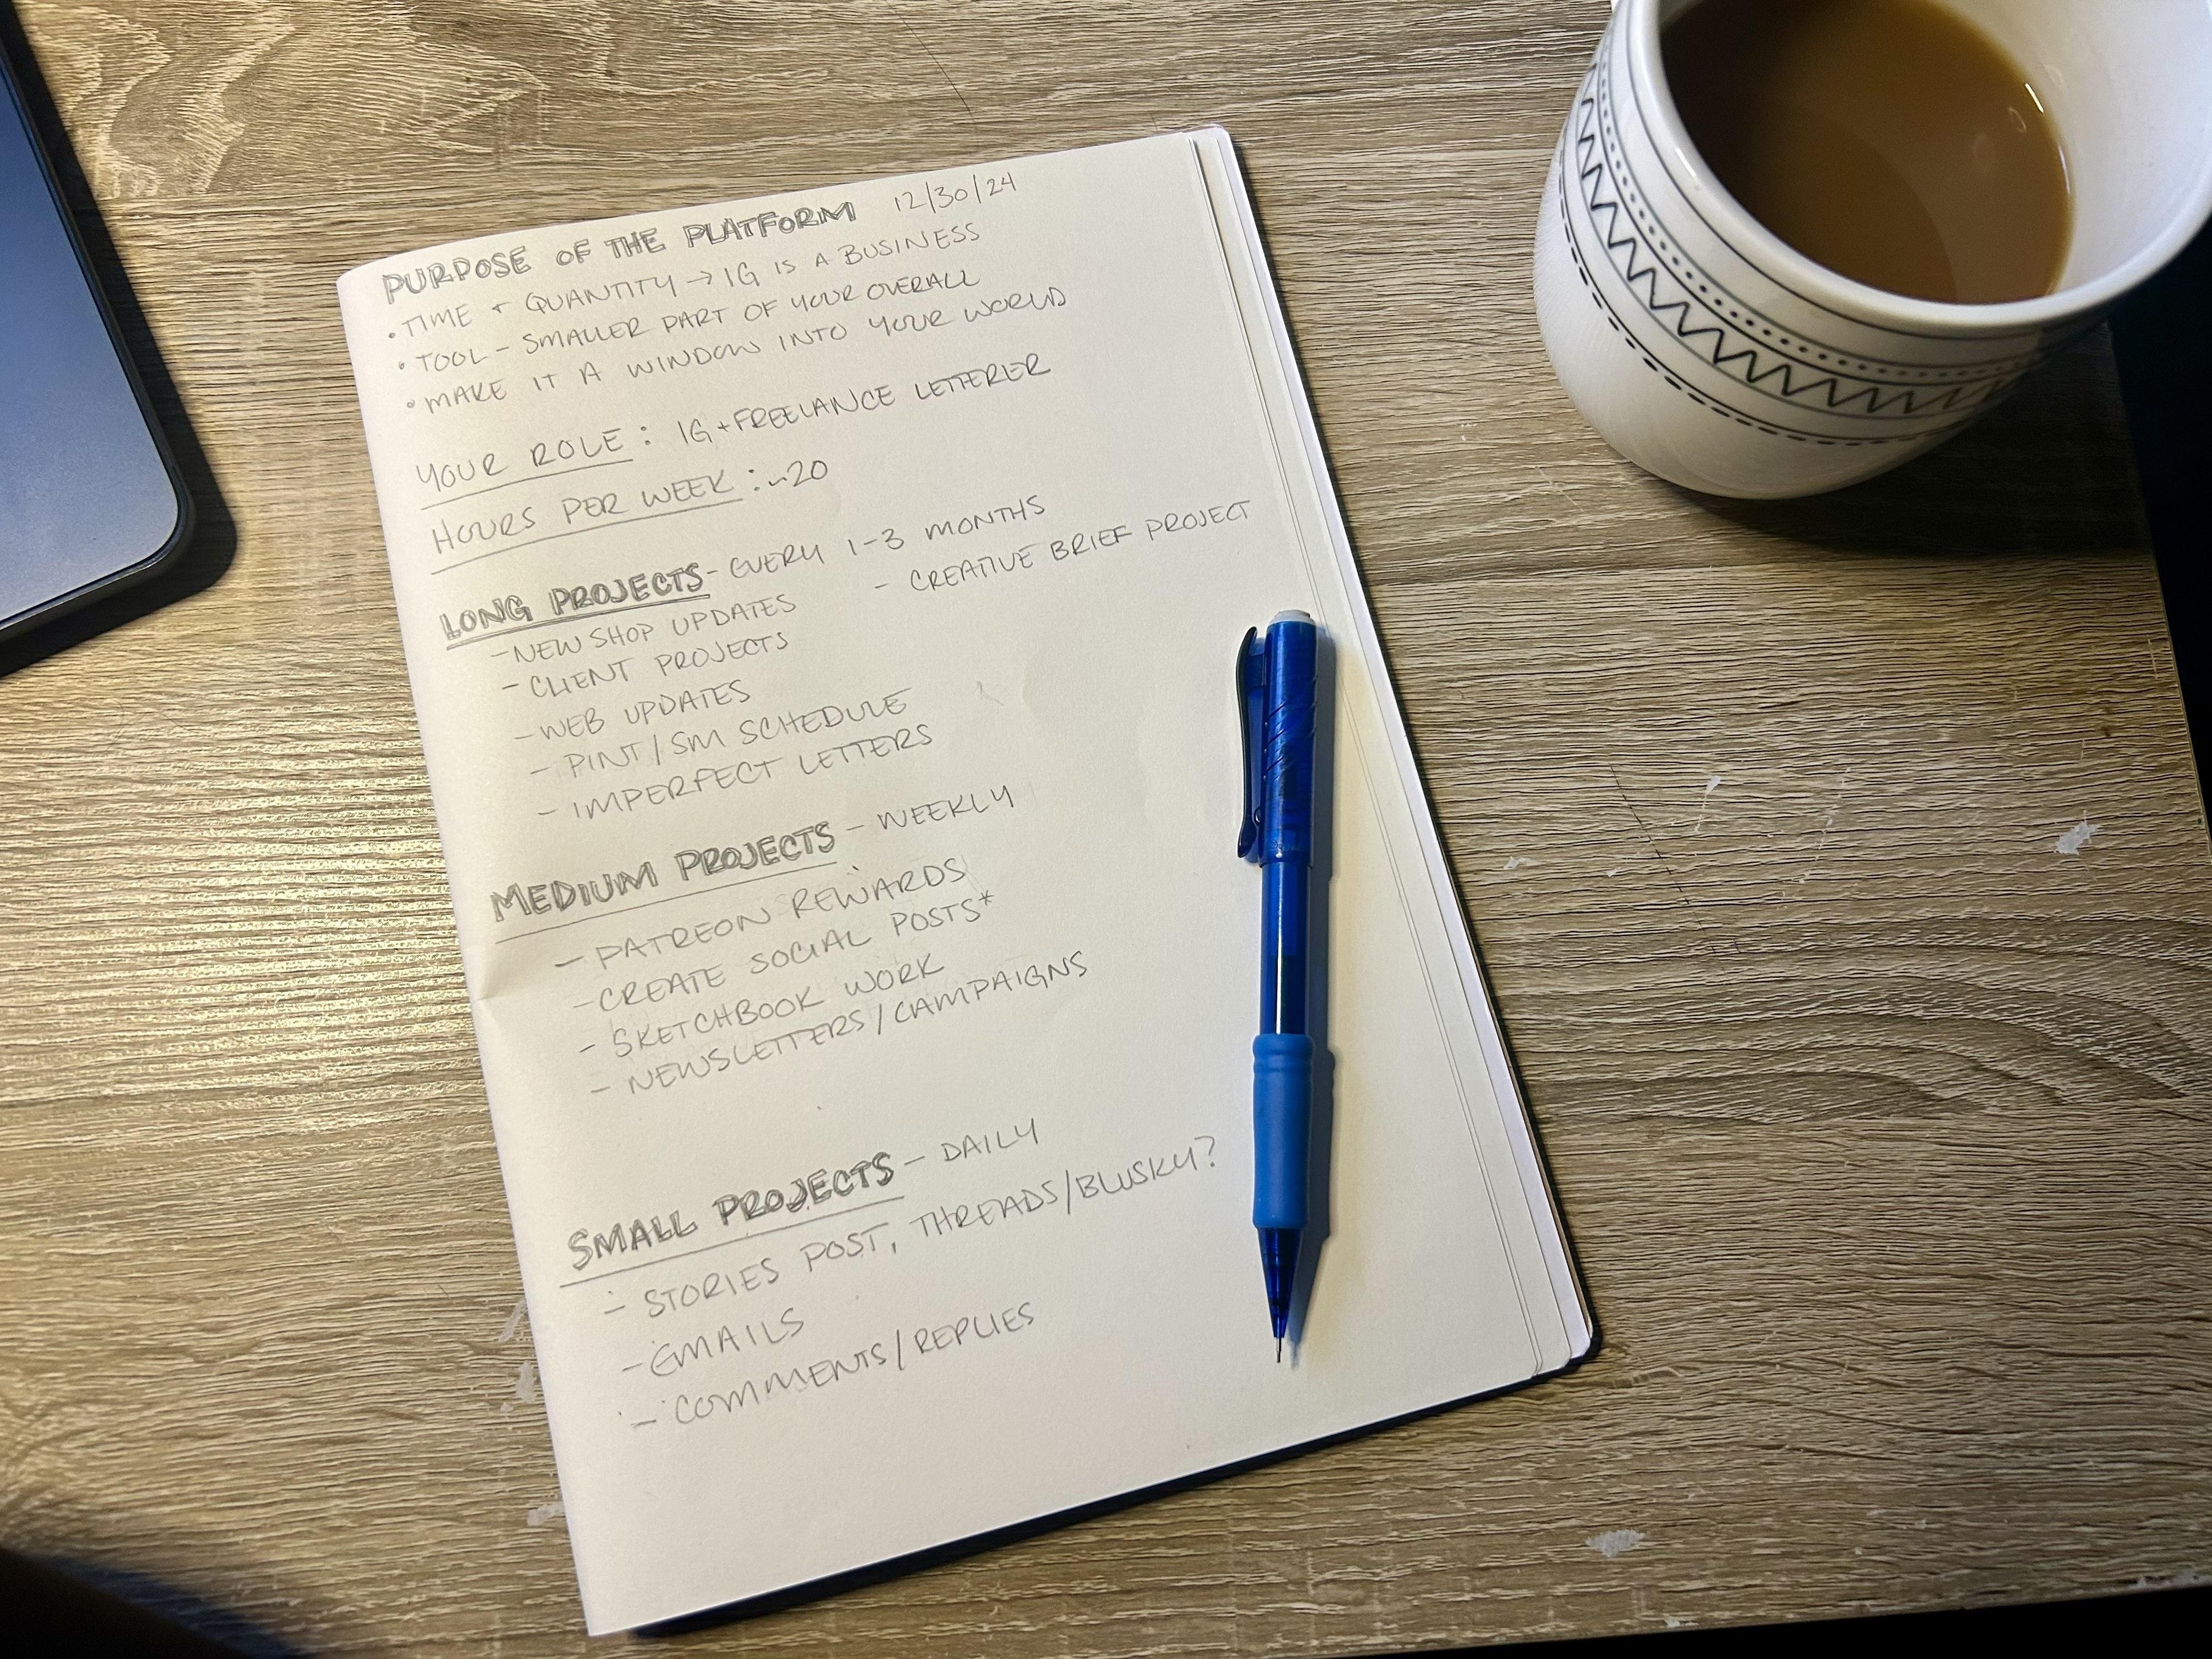 PURPOSE OF THE PLATFORM 12/30/24
• TIME + QUANTITY → IG IS A BUSINESS
• TOOL - SMALLER PART OF YOUR OVERALL
• MAKE IT A WINDOW INTO YOUR WORLD
YOUR ROLE: IG + FREELANCE LETTERER
HOURS PER WEEK: ~20
LONG PROJECTS - EVERY 1-3 MONTHS
- NEW SHOP UPDATES - CREATIVE BRIEF PROJECT
- CLIENT PROJECTS
- WEB UPDATES
- PINT/SM SCHEDULE
- IMPERFECT LETTERS
MEDIUM PROJECTS - WEEKLY
- PATREON REWARDS
- CREATE SOCIAL POSTS*
- SKETCHBOOK WORK
- NEWSLETTERS/CAMPAIGNS
SMALL PROJECTS - DAILY
- STORIES POST, THREADS/BLUSKY?
- EMAILS
- COMMENTS/REPLIES